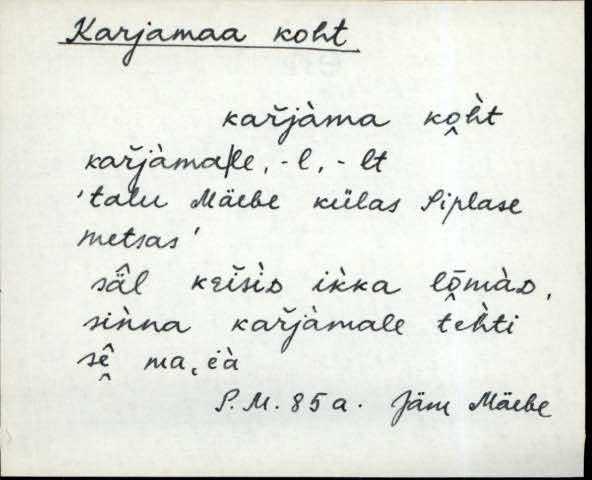 Karjamaa koht
kařjàma ko̭h̀t
kařjàma|le, -l, -lt
'talu Mäebe külas Siplase
metsas'
sä̂l keìšìᴅ ik̀ka lō̭màᴅ,
siǹna kařjàmale teh̀ti
sḙ̂ ma˛ià
S.M. 85a. Jäm Mäebe